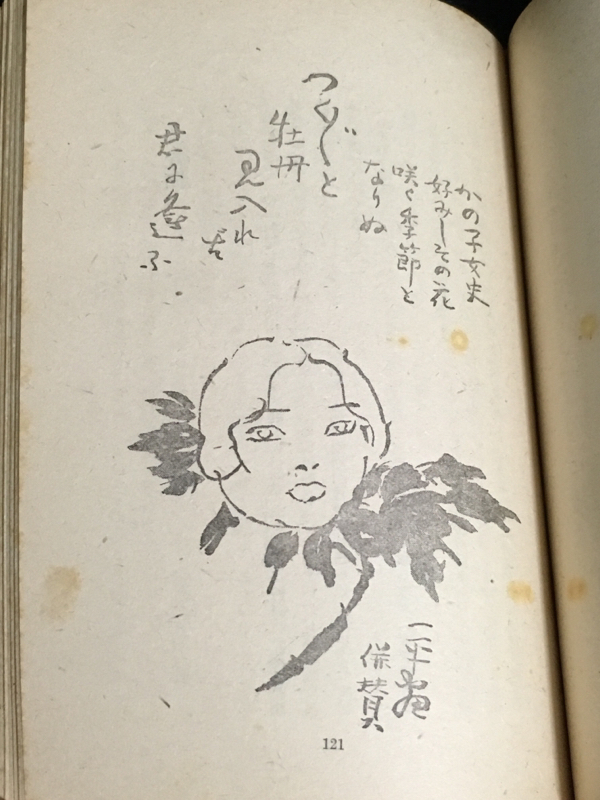 かの子女史
好みしその花
咲く季節と
なりぬ
つく〲と
牡丹
見入れ
ば
君に逢ふ
一平画
併賛
121